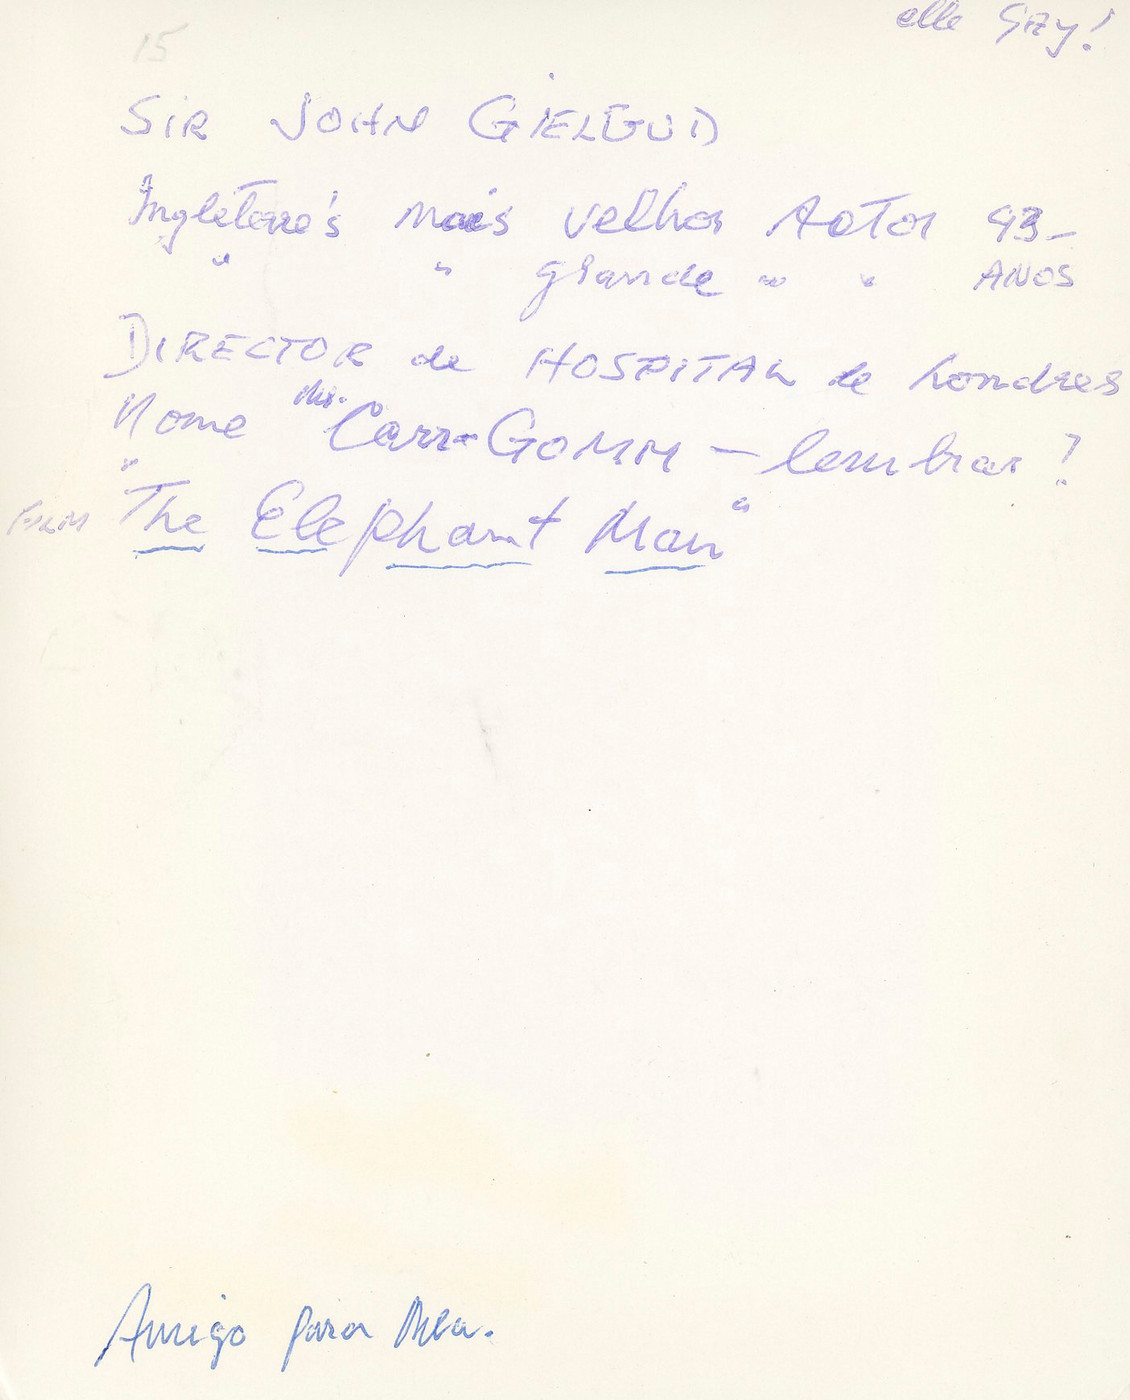 elle GAY!
15
SIR JOHN GIELGUD
Ingleterre's mais velhor Actor 93-
" " grande " " ANOS
DIRECTOR de HOSPITAL de Londres
Nome Mr. Carr-GOMM - lembrar?
FILM "The Elephant Man"
Amigo para